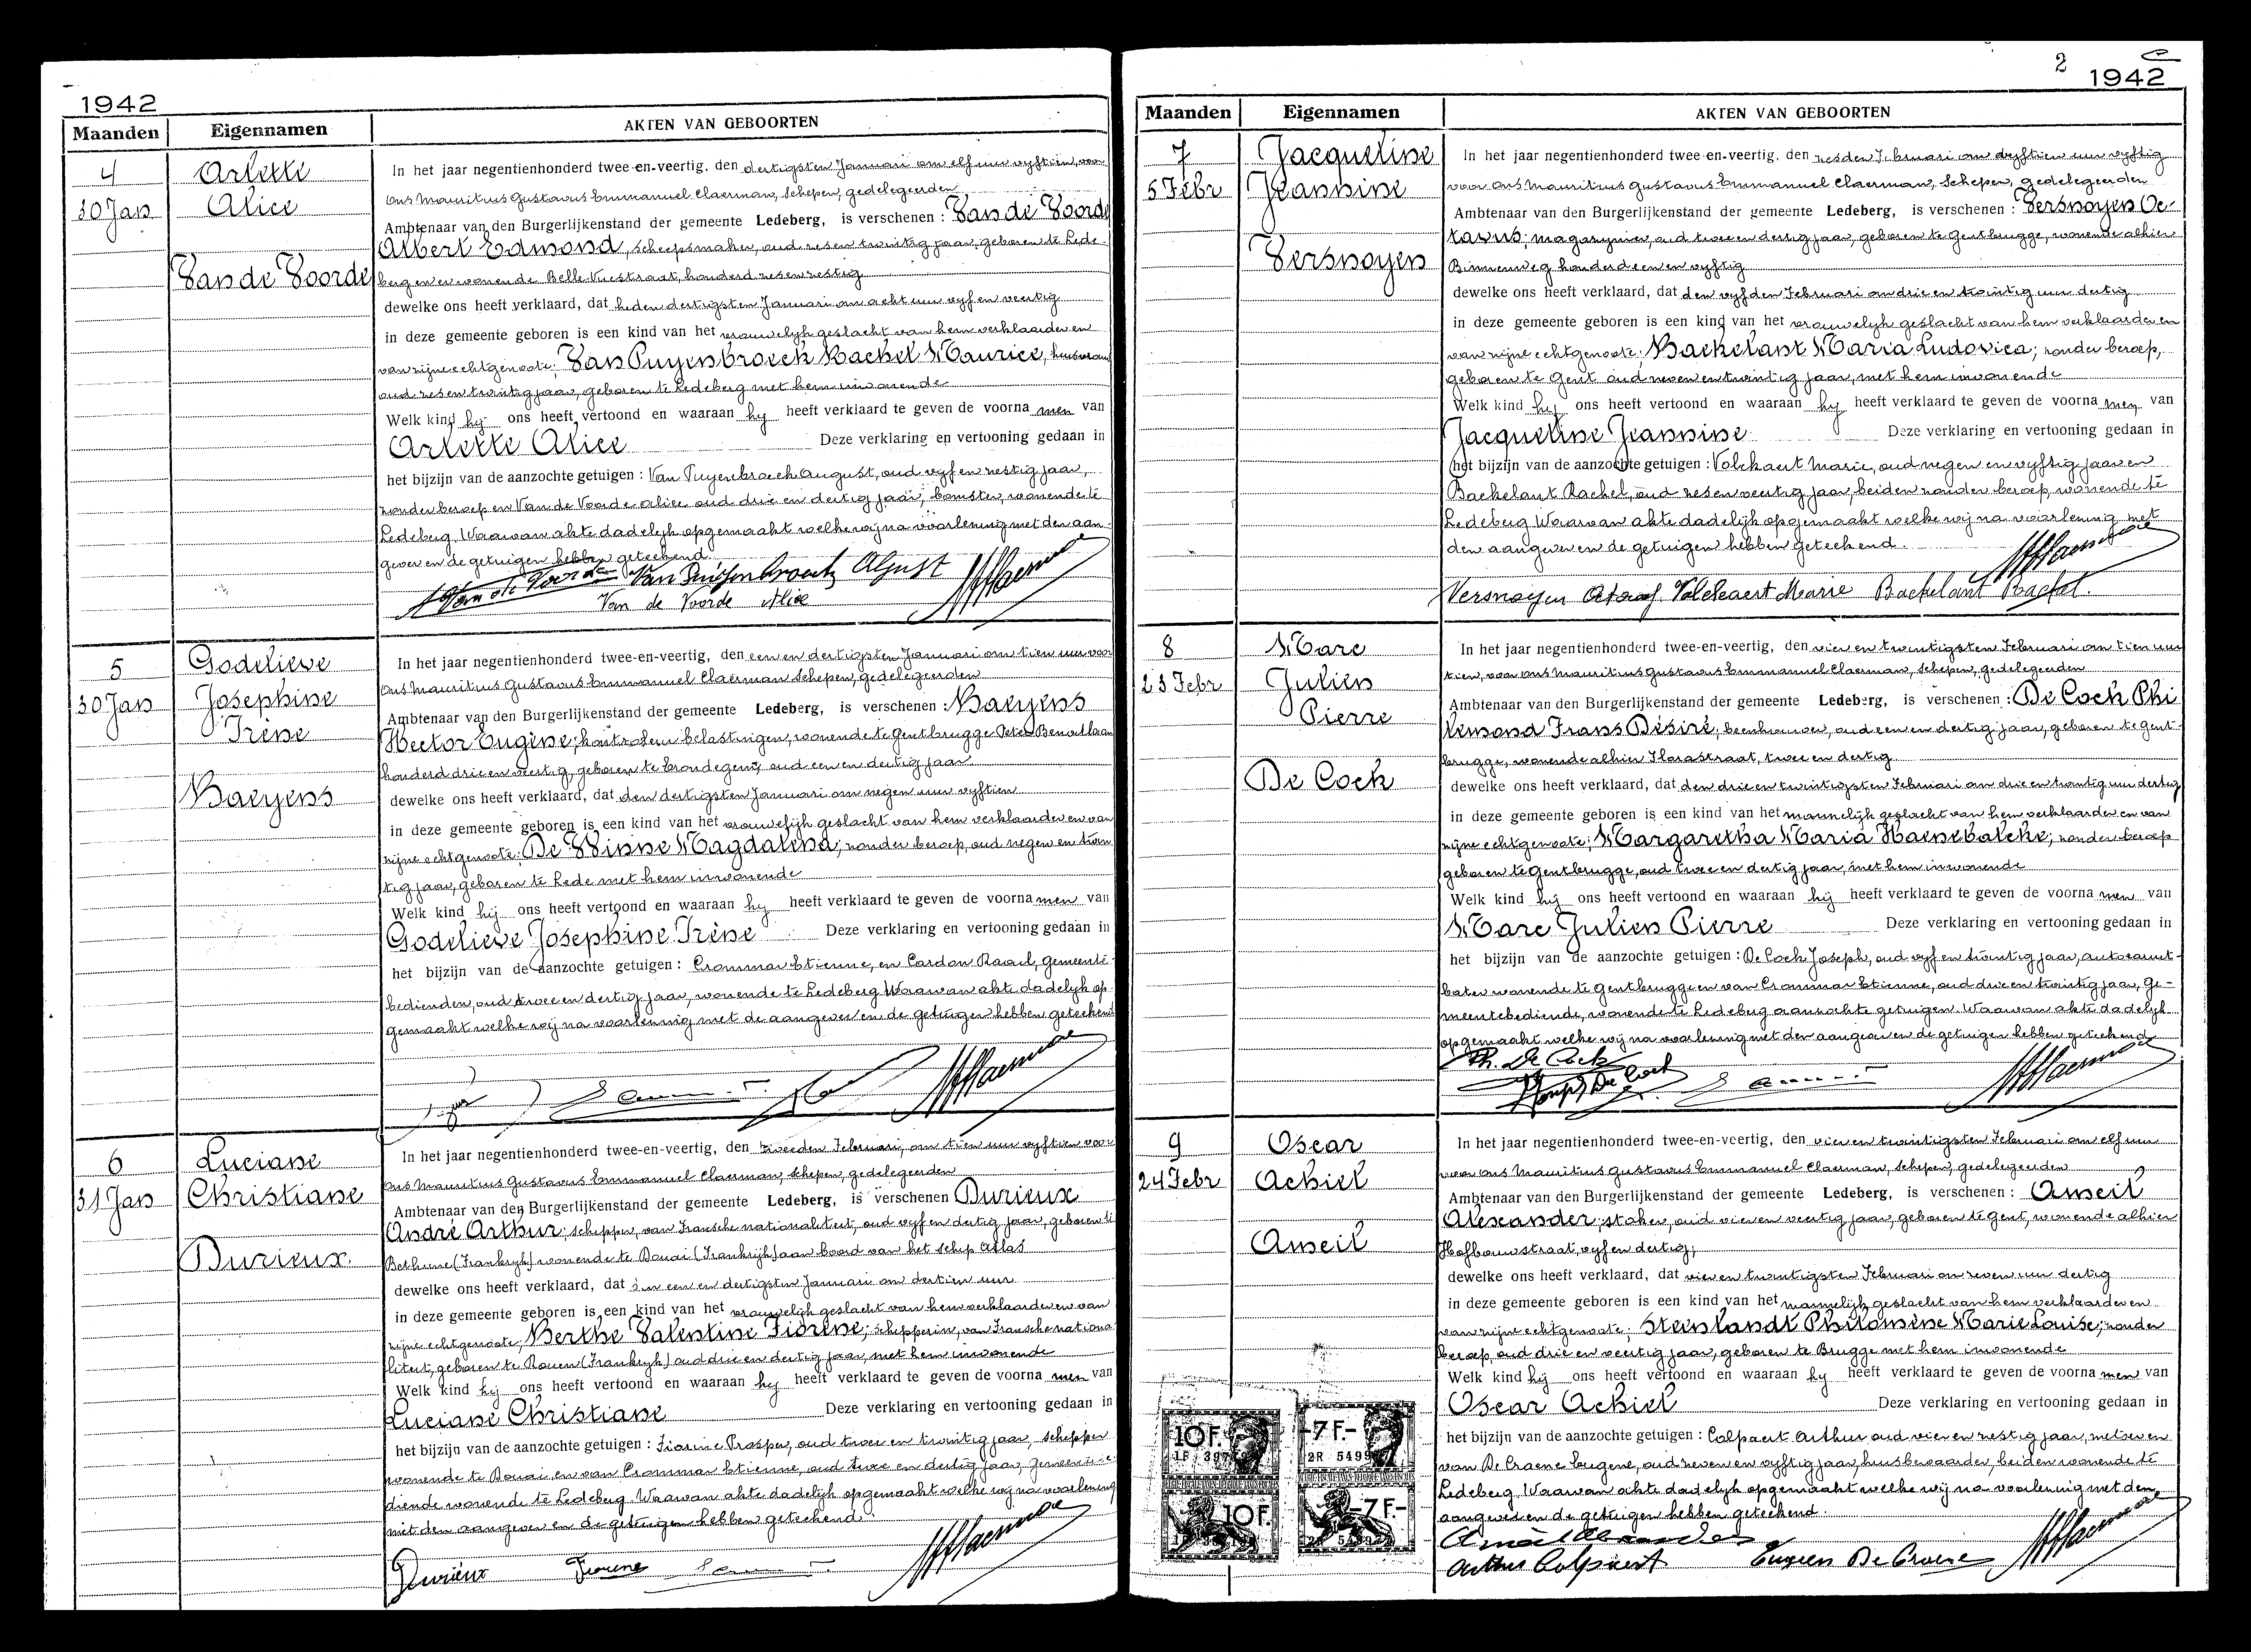 1942
Maanden Eigennamen AKTEN VAN GEBOORTEN
4
30 Jan
Arlette
Alice
Van de Voorde
In het jaar negentienhonderd twee-en-veertig, den dertigsten Januari om elf uur vyftien, voor
ons Mauritius Gustavus Emmanuel Claerman, Schepen, gedelegeerden
Ambtenaar van den Burgerlijkenstand der gemeente Ledeberg, is verschenen : Van de Voorde
Albert Edmond, scheepsmaker, oud zesen twintig jaar, geboren te Lede-
berg en er wonende Belle Vuestraat, honderd zesen zestig
dewelke ons heeft verklaard, dat heden dertigsten Januari om acht uur vyf en veertig
in deze gemeente geboren is een kind van het vrouwelyk geslacht van hem verklaarder en
van zijne echtgenoote: Van Puyenbroeck Rachel Maurice, huisvrouw
oud zesen twintig jaar, geboren te Ledeberg met hem inwonende
Welk kind hij ons heeft vertoond en waaraan hy heeft verklaard te geven de voorna men van
Arlette Alice Deze verklaring en vertooning gedaan in
het bijzijn van de aanzochte getuigen : Van Puyenbroeck August, oud vyf en zestig jaar,
zonder beroep en Van de Voorde Alice oud drie en dertig jaar, wonende te
Ledeberg Waarvan akte dadelyk opgemaakt welke wij na voorlezing met den aan-
gever en de getuigen hebben geteekend
Van de Voorde Van Puijenbroeck Algust
Van de Voorde Alice
5
30 Jan
Godelieve
Josephine
Irène
Baeyens
In het jaar negentienhonderd twee-en-veertig, den een en dertigsten Januari om tien uur voor
ons Mauritius Gustavus Emmanuel Claerman Schepen, gedelegeerden
Ambtenaar van den Burgerlijkenstand der gemeente Ledeberg, is verschenen : Baeyens
Hector Eugène; kontroleur belastingen, wonende te Gentbrugge Peter Benoitlaan
honderd drie en veertig, geboren te Erondegem, oud een en dertig jaar
dewelke ons heeft verklaard, dat den dertigsten Januari om negen uur vyftien
in deze gemeente geboren is een kind van het vrouwelijk geslacht van hem verklaarder en van
zijne echtgenoote: De Winne Magdalena; zonder beroep, oud negen en twin
tig jaar, geboren te Lede met hem inwonende
Welk kind hij ons heeft vertoond en waaraan hy heeft verklaard te geven de voorna men van
Godelieve Josephine Irène Deze verklaring en vertooning gedaan in
het bijzijn van de aanzochte getuigen : Crommar Etienne, en Cardon Raoul, gemeente-
bedienden, oud twee en dertig jaar, wonende te Ledeberg Waarvan akte dadelyk op-
gemaakt welke wij na voorlezing met de aangever en de getuigen hebben geteekend
6
31 Jan
Luciane
Christiane
Durieux
In het jaar negentienhonderd twee-en-veertig, den tweeden Februari, om tien uur vyftien voor
ons Mauritius Gustavus Emmanuel Claerman, Schepen, gedelegeerden
Ambtenaar van den Burgerlijkenstand der gemeente Ledeberg, is verschenen Durieux
André Arthur; schipper, van Fransche nationaliteit, oud vyf en dertig jaar, geboren te
Bethune (Frankryk) wonende te Douai (Frankrijk) aan boord van het schip Atlas
dewelke ons heeft verklaard, dat den een en dertigsten Januari om dertien uur
in deze gemeente geboren is een kind van het vrouwelijk geslacht van hem verklaarder en van
zijne echtgenoote; Berthe Valentine Fiorène; schipperin, van Fransche nationa
liteit, geboren te Rouen (Frankryk) oud drie en dertig jaar, met hem inwonende
Welk kind hij ons heeft vertoond en waaraan hy heeft verklaard te geven de voorna men van
Luciane Christiane Deze verklaring en vertooning gedaan in
het bijzijn van de aanzochte getuigen : Fiorène Prosper, oud twee en twintig jaar, schipper
wonende te Douai en van Crommar Etienne, oud twee en dertig jaar, gemeentebe-
diende wonende te Ledeberg. Waarvan akte dadelijk opgemaakt welke wij na voorlezing
met den aangever en de getuigen hebben geteekend.
Durieux Fiorene
2
1942
Maanden Eigennamen AKTEN VAN GEBOORTEN
7
5 Febr
Jacqueline
Jeannine
Versnoyen
In het jaar negentienhonderd twee-en-veertig, den zesden Februari om vyftien uur vyftig
voor ons Mauritius Gustavus Emmanuel Claerman, Schepen, gedelegeerden
Ambtenaar van den Burgerlijkenstand der gemeente Ledeberg, is verschenen : Versnoyen Oc-
tavus; magazynier, oud twee en dertig jaar, geboren te Gentbrugge, wonende alhier
Binnenweg honderd een en vyftig
dewelke ons heeft verklaard, dat den vyfden Februari om drie en twintig uur dertig
in deze gemeente geboren is een kind van het vrouwelyk geslacht van hem verklaarder en
van zijne echtgenoote: Backelant Maria Ludovica; zonder beroep,
geboren te Gent oud zeven en twintig jaar, met hem inwonende
Welk kind hij ons heeft vertoond en waaraan hy heeft verklaard te geven de voorna men van
Jacqueline Jeannine Deze verklaring en vertooning gedaan in
het bijzijn van de aanzochte getuigen : Volckaert Marie, oud negen en vyftig jaar en
Backelant Rachel, oud zesen veertig jaar, beiden zonder beroep, wonende te
Ledeberg Waarvan akte dadelijk opgemaakt welke wij na voorlezing met
den aangever en de getuigen hebben geteekend.
Versnoyen Octaaf. Volckaert Marie Backelant Rachel.
8
23 Febr
Marc
Julien
Pierre
De Cock
In het jaar negentienhonderd twee-en-veertig, den vier en twintigsten Februari om tien uur
tien, voor ons Mauritius Gustavus Emmanuel Claerman, Schepen, gedelegeerden
Ambtenaar van den Burgerlijkenstand der gemeente Ledeberg, is verschenen : De Cock Phi
lemond Frans Désiré; beenhouwer, oud een en dertig jaar, geboren te Gent-
brugge, wonende alhier Florastraat, twee en dertig
dewelke ons heeft verklaard, dat den drie en twintigsten Februari om drie en twintig uur dertig
in deze gemeente geboren is een kind van het mannelijk geslacht van hem verklaarder en van
zijne echtgenoote; Margaretha Maria Haenebalcke; zonder beroep
geboren te Gentbrugge, oud twee en dertig jaar, met hem inwonende
Welk kind hij ons heeft vertoond en waaraan hij heeft verklaard te geven de voorna men van
Marc Julien Pierre Deze verklaring en vertooning gedaan in
het bijzijn van de aanzochte getuigen : De Cock Joseph, oud vyf en twintig jaar,
wonende te Gentbrugge en van Crommar Etienne, oud drie en twintig jaar, ge-
meentebediende, wonende te Ledeberg aanzochte getuigen. Waarvan akte dadelijk
opgemaakt welke wij na voorlezing met den aangever en de getuigen hebben geteekend
Ph. De Cock
Joseph De Cock
9
24 Febr
Oscar
Achiel
Ameil
In het jaar negentienhonderd twee-en-veertig, den vier en twintigsten Februari om elf uur
voor ons Mauritius Gustavus Emmanuel Claerman, Schepen, gedelegeerden
Ambtenaar van den Burgerlijkenstand der gemeente Ledeberg, is verschenen : Ameil
Alexander; stoker, oud vier en veertig jaar, geboren te Gent, wonende alhier
Hofbouwstraat, vyf en dertig;
dewelke ons heeft verklaard, dat vier en twintigsten Februari om zeven uur dertig
in deze gemeente geboren is een kind van het mannelijk geslacht van hem verklaarder en
van zijne echtgenoote; Steenlandt Philomène Marie Louise; zonder
beroep, oud drie en veertig jaar, geboren te Brugge met hem inwonende
Welk kind hij ons heeft vertoond en waaraan hy heeft verklaard te geven de voorna men van
Oscar Achiel Deze verklaring en vertooning gedaan in
het bijzijn van de aanzochte getuigen : Colpaert Arthur oud vier en zestig jaar, metser en
van De Craene Eugene, oud zeven en vyftig jaar, huisbewaarder, beiden wonende te
Ledeberg. Waarvan akte dadelyk opgemaakt welke wij na voorlezing met den
aangever en de getuigen hebben geteekend.
Ameil Alexander
Arthur Colpaert Eugeen De Craene
10F. -7F.-
10F. -7F.-